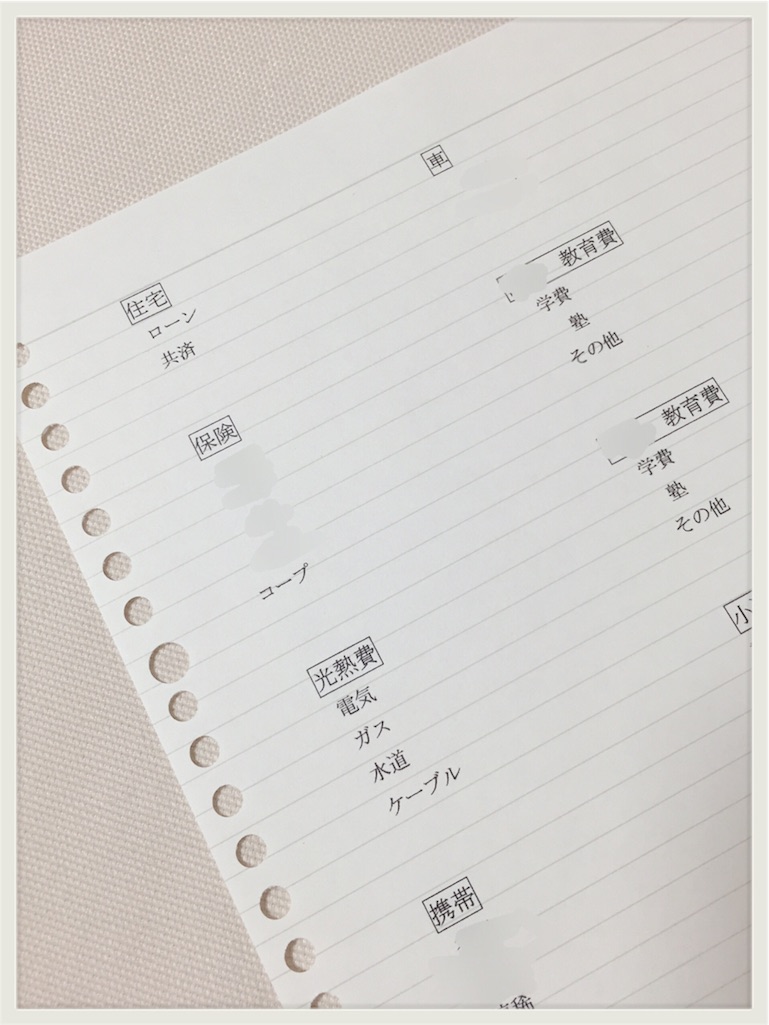 住宅
ローン
共済
保険
コープ
光熱費
電気
ガス
水道
ケーブル
携帯
車
教育費
学費
塾
その他
教育費
学費
塾
その他
小